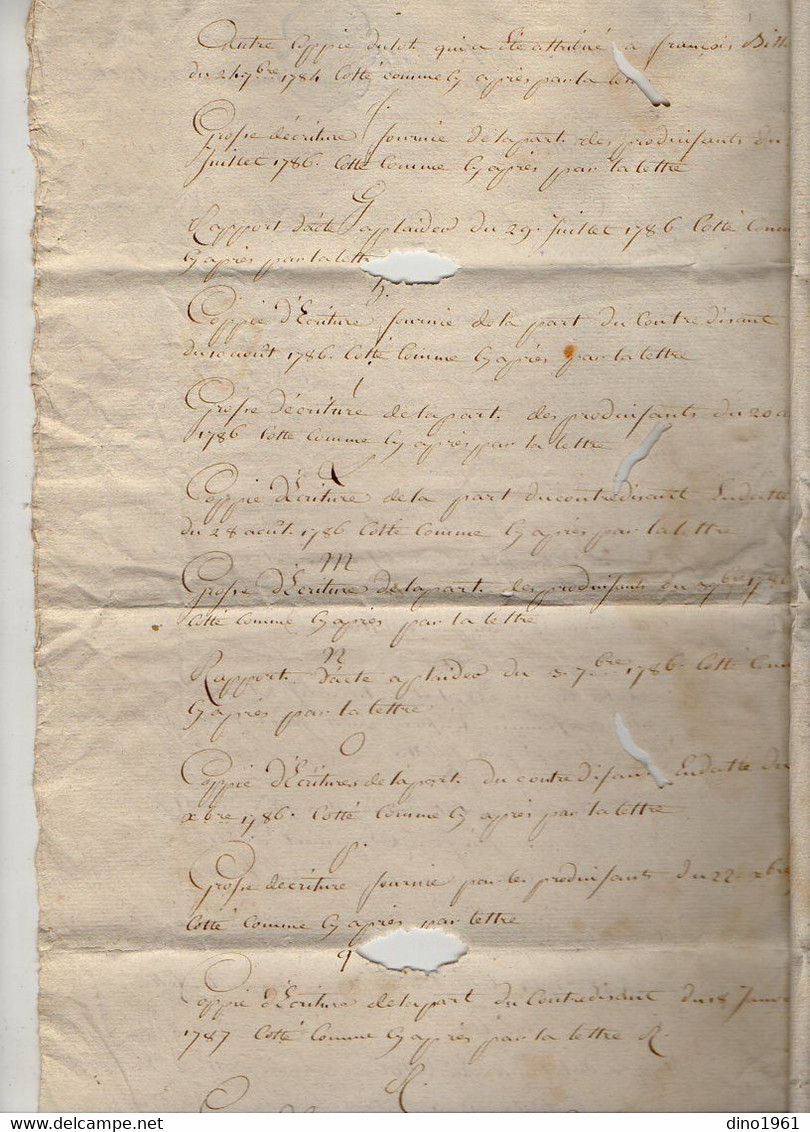 Autre Coppie dulot quia Eté attribué a françois
du 24 7bre 1784 Cotté Comme Cy après par la
f.
Grosse décriture fournie de la part des produisants du
Juillet 1786. Cotté Comme Cy après par la lettre
G
Rapport d'acte a plaider du 29. Juillet 1786 Cotté Comm
Cy après par la lettre
h.
Coppie d'Ecriture fournie de la part du Contredisant
du 10 août 1786. Cotté Comme Cy après par la lettre
i
Grosse décriture de la part des produisants du 20 a
1786 Cotté Comme Cy après par la lettre
L
Coppie d'Ecriture de la part du contredisant Endatte
du 28 août. 1786 Cotté Comme Cy après par la lettre
M
Grosse d'Ecriture de la part des produisants du 7bre 1786
Cotté Comme Cy après par la lettre
N
Rapport d'acte a plaider du 3. 7bre 1786. Cotté Com
Cy après par la lettre
O
Coppie d'Ecritures de la part du contredisant Endatte du
xbre 1786. Cotté Comme Cy après par la lettre
p.
Grosse decriture fournie par les produisants du 22 xbre
Cotté Comme Cy après par lettre
q
Coppie d'Ecriture de la part du Contredisant du 18 Janv
1787 Cotté Comme Cy après par la lettre R.
R.
dino1961